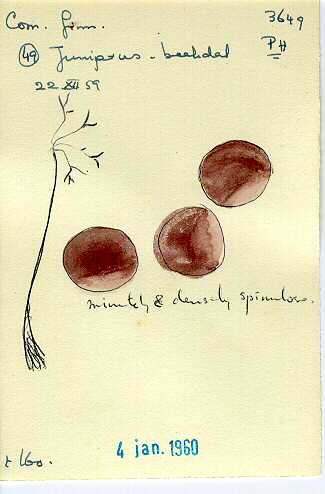 Com. 3649
PH
49 Juniperus - beekdal
22 XII 59
minutely & densely spinulose.
± 160.
4 jan. 1960